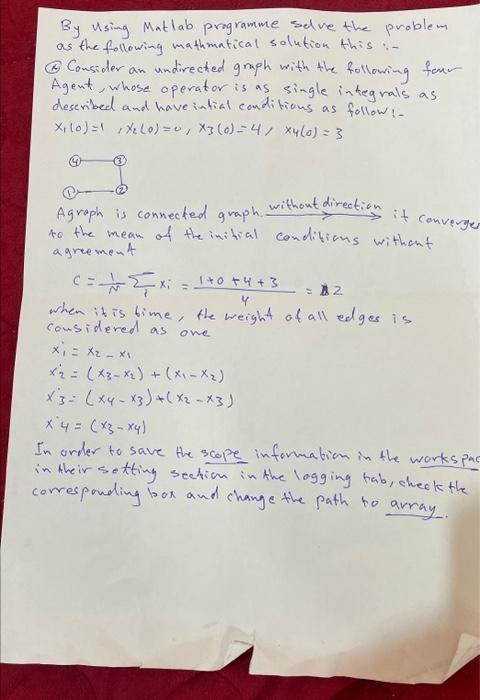 By Using Matlab programme solve the problem
as the following mathmatical solution this :-
* Consider an undirected graph with the following four
Agent, whose operator is as single integrals as
described and have intial conditions as follow:-
x1(0)=1 , x2(0)=0, x3(0)=4, x4(0)=3
4 3
1 2
Agraph is connected graph. without direction it converges
to the mean of the initial conditions without
agreement
C = 1/N Σ i xi = 1+0+4+3 / 4 = 2
when it is time, the weight of all edges is
considered as one
ẋ1 = x2 - x1
ẋ2 = (x3-x2) + (x1-x2)
ẋ3 = (x4-x3)+(x2-x3)
ẋ4 = (x3-x4)
In order to save the scope information in the workspac
in their setting section in the logging tab, check the
corresponding box and change the path to array.